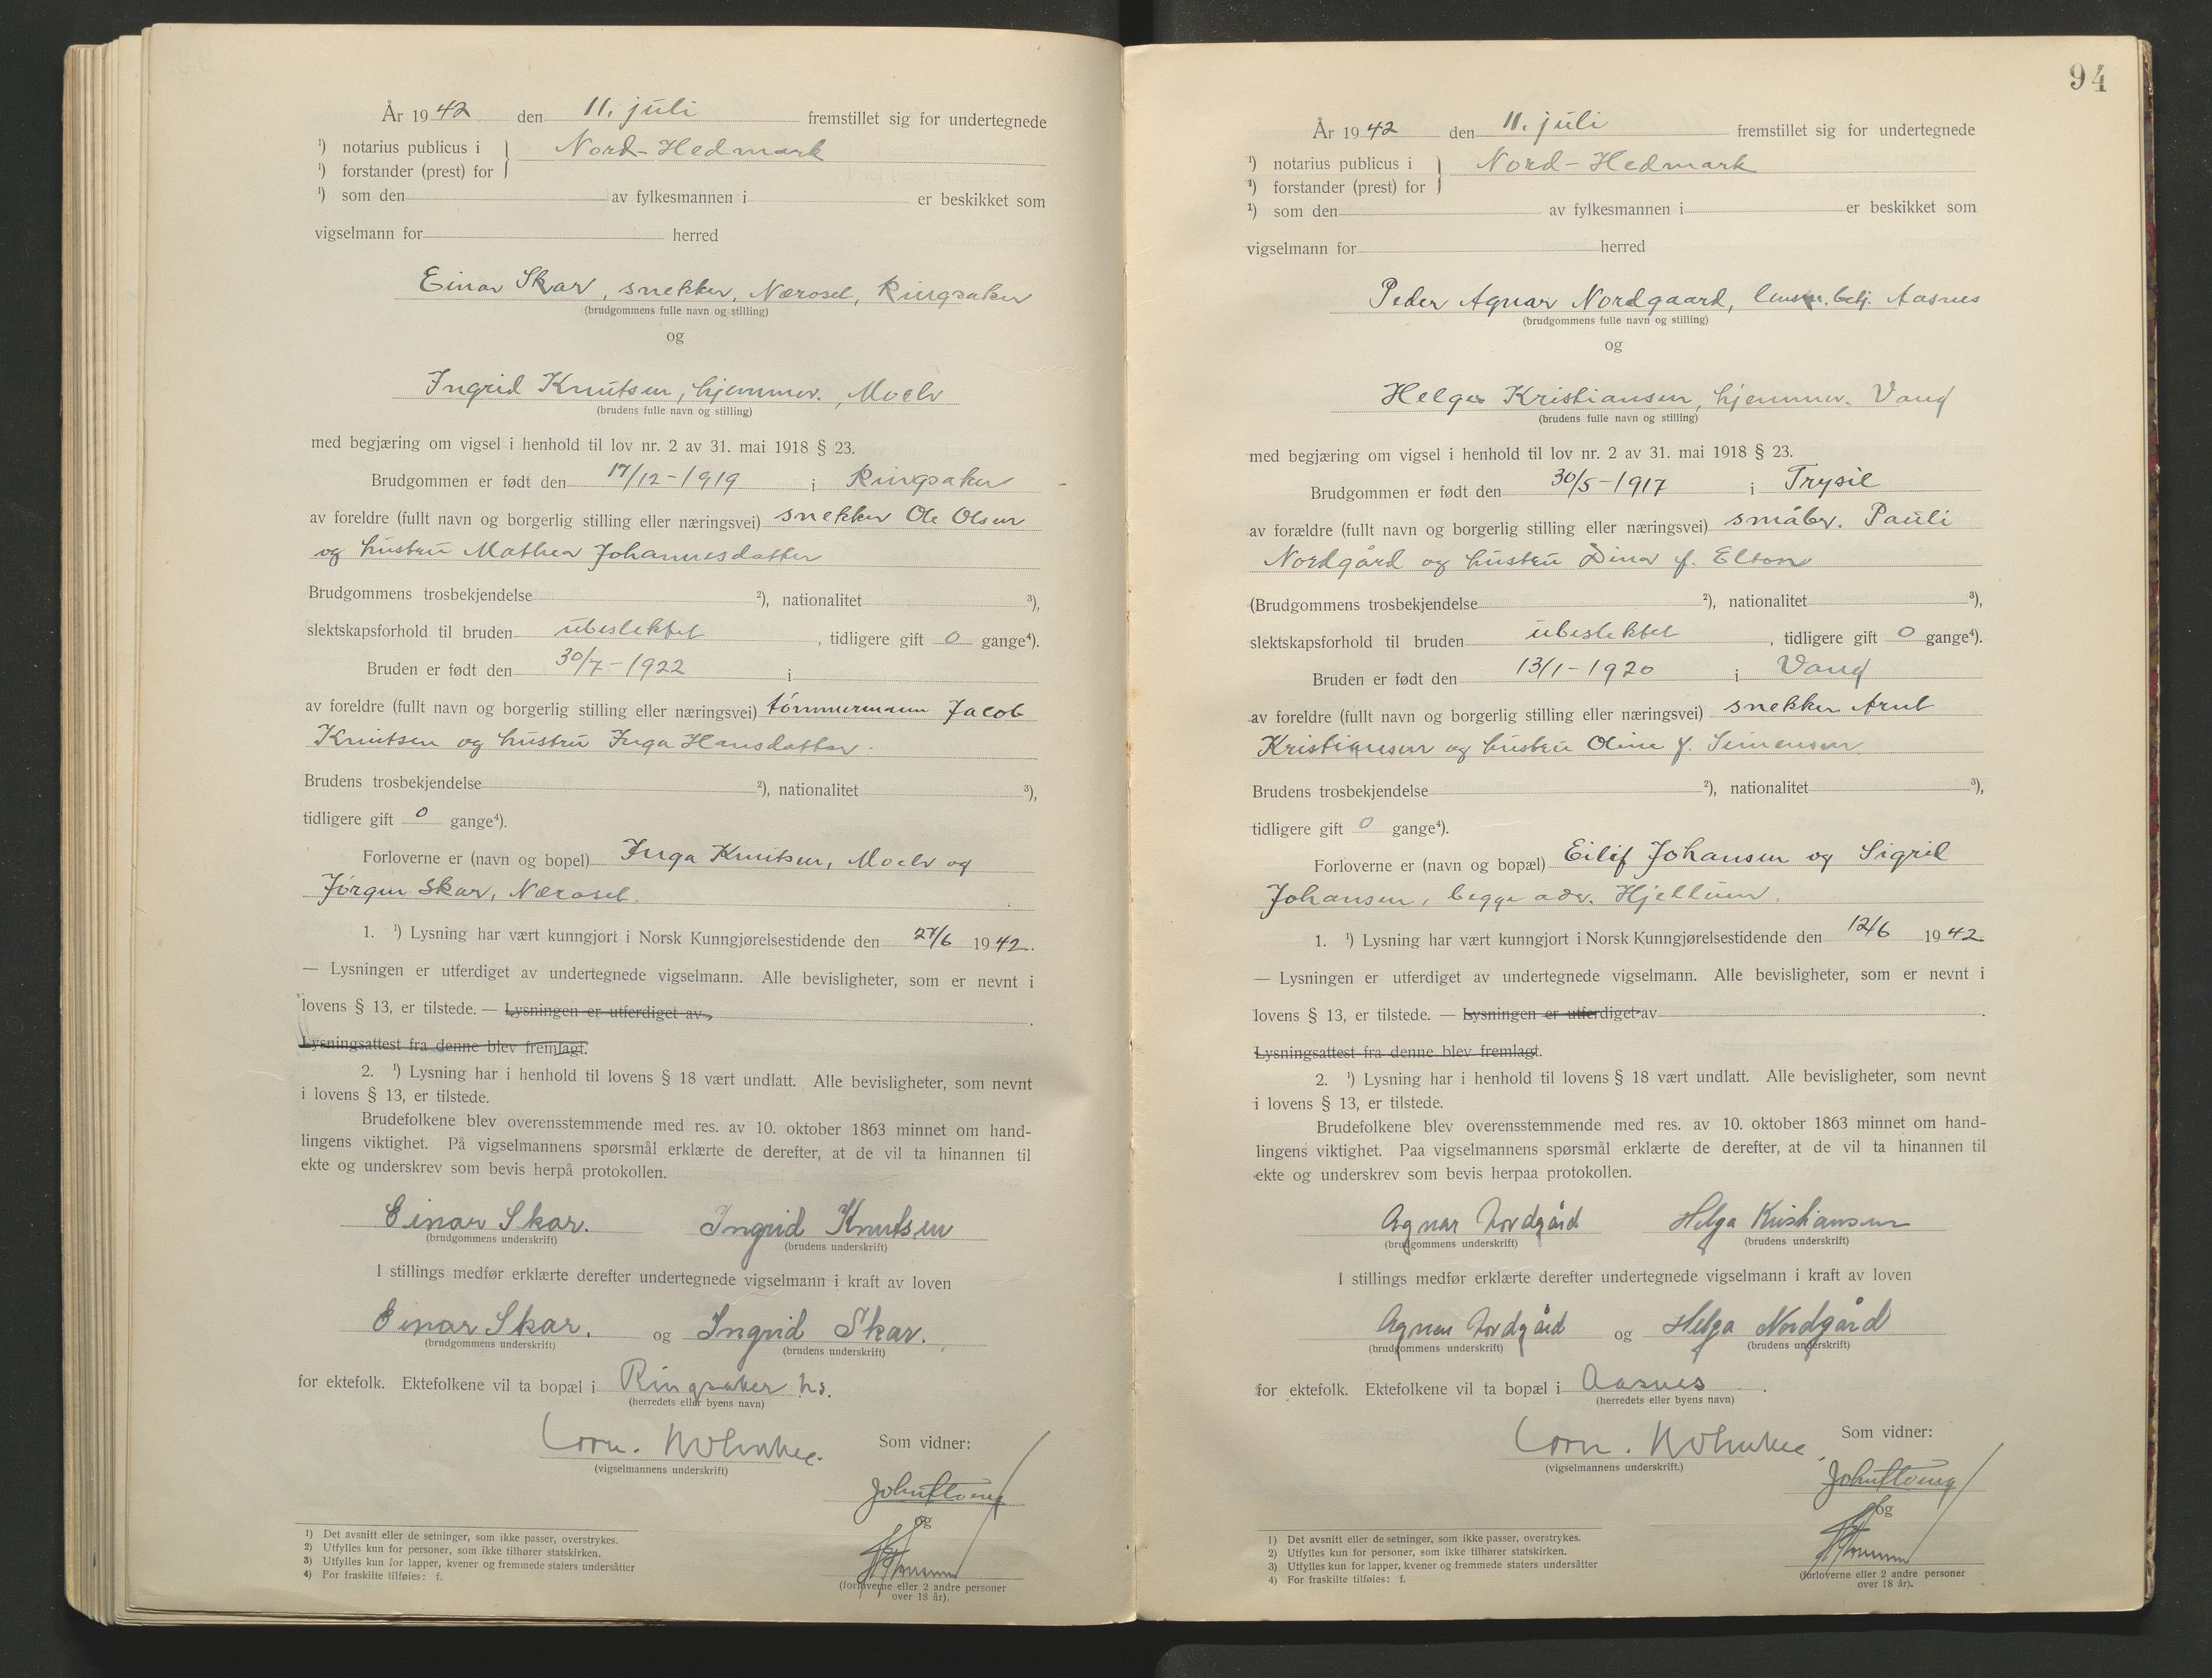 År 1942 den 11. juli fremstillet sig for undertegnede
¹) notarius publicus i } Nord-Hedmark
¹) forstander (prest) for
¹) som den av fylkesmannen i er beskikket som
vigselmann for herred
Einar Skar, snekker, Næroset, Ringsaker
(brudgommens fulle navn og stilling)
og
Ingrid Knutsen, hjemmev., Moelv
(brudens fulle navn og stilling)
med begjæring om vigsel i henhold til lov nr. 2 av 31. mai 1918 § 23.
Brudgommen er født den 17/12-1919 i Ringsaker
av foreldre (fullt navn og borgerlig stilling eller næringsvei) snekker Ole Olsen
og hustru Mathea Johannesdatter
Brudgommens trosbekjendelse ²), nationalitet ³),
slektskapsforhold til bruden ubeslektet, tidligere gift 0 gange⁴).
Bruden er født den 30/7-1922 i
av foreldre (fullt navn og borgerlig stilling eller næringsvei) tømmermann Jacob
Knutsen og hustru Inga Hansdatter.
Brudens trosbekjendelse ²), nationalitet ³),
tidligere gift 0 gange⁴).
Forloverne er (navn og bopel) Inga Knutsen, Moelv og
Jørgen Skar, Næroset.
1. ¹) Lysning har vært kunngjort i Norsk Kunngjørelsestidende den 27/6 1942.
— Lysningen er utferdiget av undertegnede vigselmann. Alle bevisligheter, som er nevnt i
lovens § 13, er tilstede. — Lysningen er utferdiget av
Lysningsattest fra denne blev fremlagt.
2. ¹) Lysning har i henhold til lovens § 18 vært undlatt. Alle bevisligheter, som nevnt
i lovens § 13, er tilstede.
Brudefolkene blev overensstemmende med res. av 10. oktober 1863 minnet om hand-
lingens viktighet. På vigselmannens spørsmål erklærte de derefter, at de vil ta hinannen til
ekte og underskrev som bevis herpå protokollen.
Einar Skar. Ingrid Knutsen
(brudgommens underskrift) (brudens underskrift)
I stillings medfør erklærte derefter undertegnede vigselmann i kraft av loven
Einar Skar. og Ingrid Skar.
(brudgommens underskrift) (brudens underskrift)
for ektefolk. Ektefolkene vil ta bopæl i Ringsaker hd.
(herredets eller byens navn)
Corn. Som vidner:
(vigselmannens underskrift)
og
(forloverne eller 2 andre personer
over 18 år).
¹) Det avsnitt eller de setninger, som ikke passer, overstrykes.
2) Utfylles kun for personer, som ikke tilhører statskirken.
3) Utfylles kun for lapper, kvener og fremmede staters undersåtter
4) For fraskilte tilføies: f.
94
År 1942 den 11. juli fremstillet sig for undertegnede
¹) notarius publicus i } Nord-Hedmark
¹) forstander (prest) for
¹) som den av fylkesmannen i er beskikket som
vigselmann for herred
Peder Agnar Nordgaard, lensm.betj. Aasnes
(brudgommens fulle navn og stilling)
og
Helga Kristiansen, hjemmev. Vang
(brudens fulle navn og stilling)
med begjæring om vigsel i henhold til lov nr. 2 av 31. mai 1918 § 23.
Brudgommen er født den 30/5-1917 i Trysil
av forældre (fullt navn og borgerlig stilling eller næringsvei) småbr. Pauli
Nordgård og hustru Dina f. Elton
(Brudgommens trosbekjendelse ²), nationalitet ³),
slektskapsforhold til bruden ubeslektet, tidligere gift 0 gange⁴).
Bruden er født den 13/1-1920 i Vang
av foreldre (fullt navn og borgerlig stilling eller næringsvei) snekker Arnt
Kristiansen og hustru Oline f. Simensen
Brudens trosbekjendelse ²), nationalitet ³),
tidligere gift 0 gange⁴).
Forloverne er (navn og bopæl) Eilif Johansen og Sigrid
Johansen, begge adr. Hjellum.
1. ¹) Lysning har vært kunngjort i Norsk Kunngjørelsestidende den 12/6 1942
— Lysningen er utferdiget av undertegnede vigselmann. Alle bevisligheter, som er nevnt i
lovens § 13, er tilstede. — Lysningen er utferdiget av
Lysningsattest fra denne blev fremlagt.
2. ¹) Lysning har i henhold til lovens § 18 vært undlatt. Alle bevisligheter, som nevnt
i lovens § 13, er tilstede.
Brudefolkene blev overensstemmende med res. av 10. oktober 1863 minnet om hand-
lingens viktighet. Paa vigselmannens spørsmål erklærte de derefter, at de vil ta hinannen til
ekte og underskrev som bevis herpaa protokollen.
Agnar Nordgård Helga Kristiansen
(brudgommens underskrift) (brudens underskrift)
I stillings medfør erklærte derefter undertegnede vigselmann i kraft av loven
Agnar Nordgård og Helga Nordgård
(brudgommens underskrift) (brudens underskrift)
for ektefolk. Ektefolkene vil ta bopæl i Aasnes.
(herredets eller byens navn)
Corn. Som vidner:
(vigselmannens underskrift.)
og
(forloverne eller 2 andre personer
over 18 år).
1) Det avsnitt eller de setninger, som ikke passer, overstrykes.
2) Utfylles kun for personer, som ikke tilhører statskirken.
3) Utfylles kun for lapper, kvener og fremmede staters undersåtter
4) For fraskilte tilføies: f.